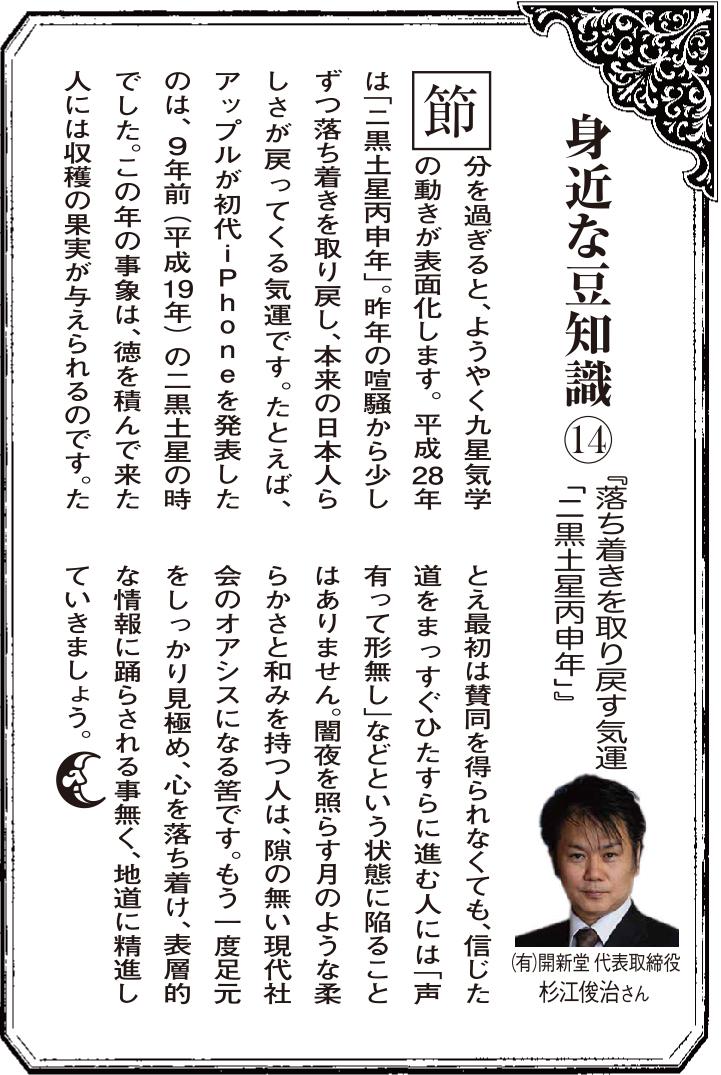 身近な豆知識⑭
『落ち着きを取り戻す気運
「二黒土星丙申年」』
㈲開新堂 代表取締役
杉江俊治さん
節分を過ぎると、ようやく九星気学
の動きが表面化します。平成28年
は「二黒土星丙申年」。昨年の喧騒から少し
ずつ落ち着きを取り戻し、本来の日本人ら
しさが戻ってくる気運です。たとえば、
アップルが初代iPhoneを発表した
のは、9年前（平成19年）の二黒土星の時
でした。この年の事象は、徳を積んで来た
人には収穫の果実が与えられるのです。た
とえ最初は賛同を得られなくても、信じた
道をまっすぐひたすらに進む人には「声
有って形無し」などという状態に陥ること
はありません。闇夜を照らす月のような柔
らかさと和みを持つ人は、隙の無い現代社
会のオアシスになる筈です。もう一度足元
をしっかり見極め、心を落ち着け、表層的
な情報に踊らされる事無く、地道に精進し
ていきましょう。